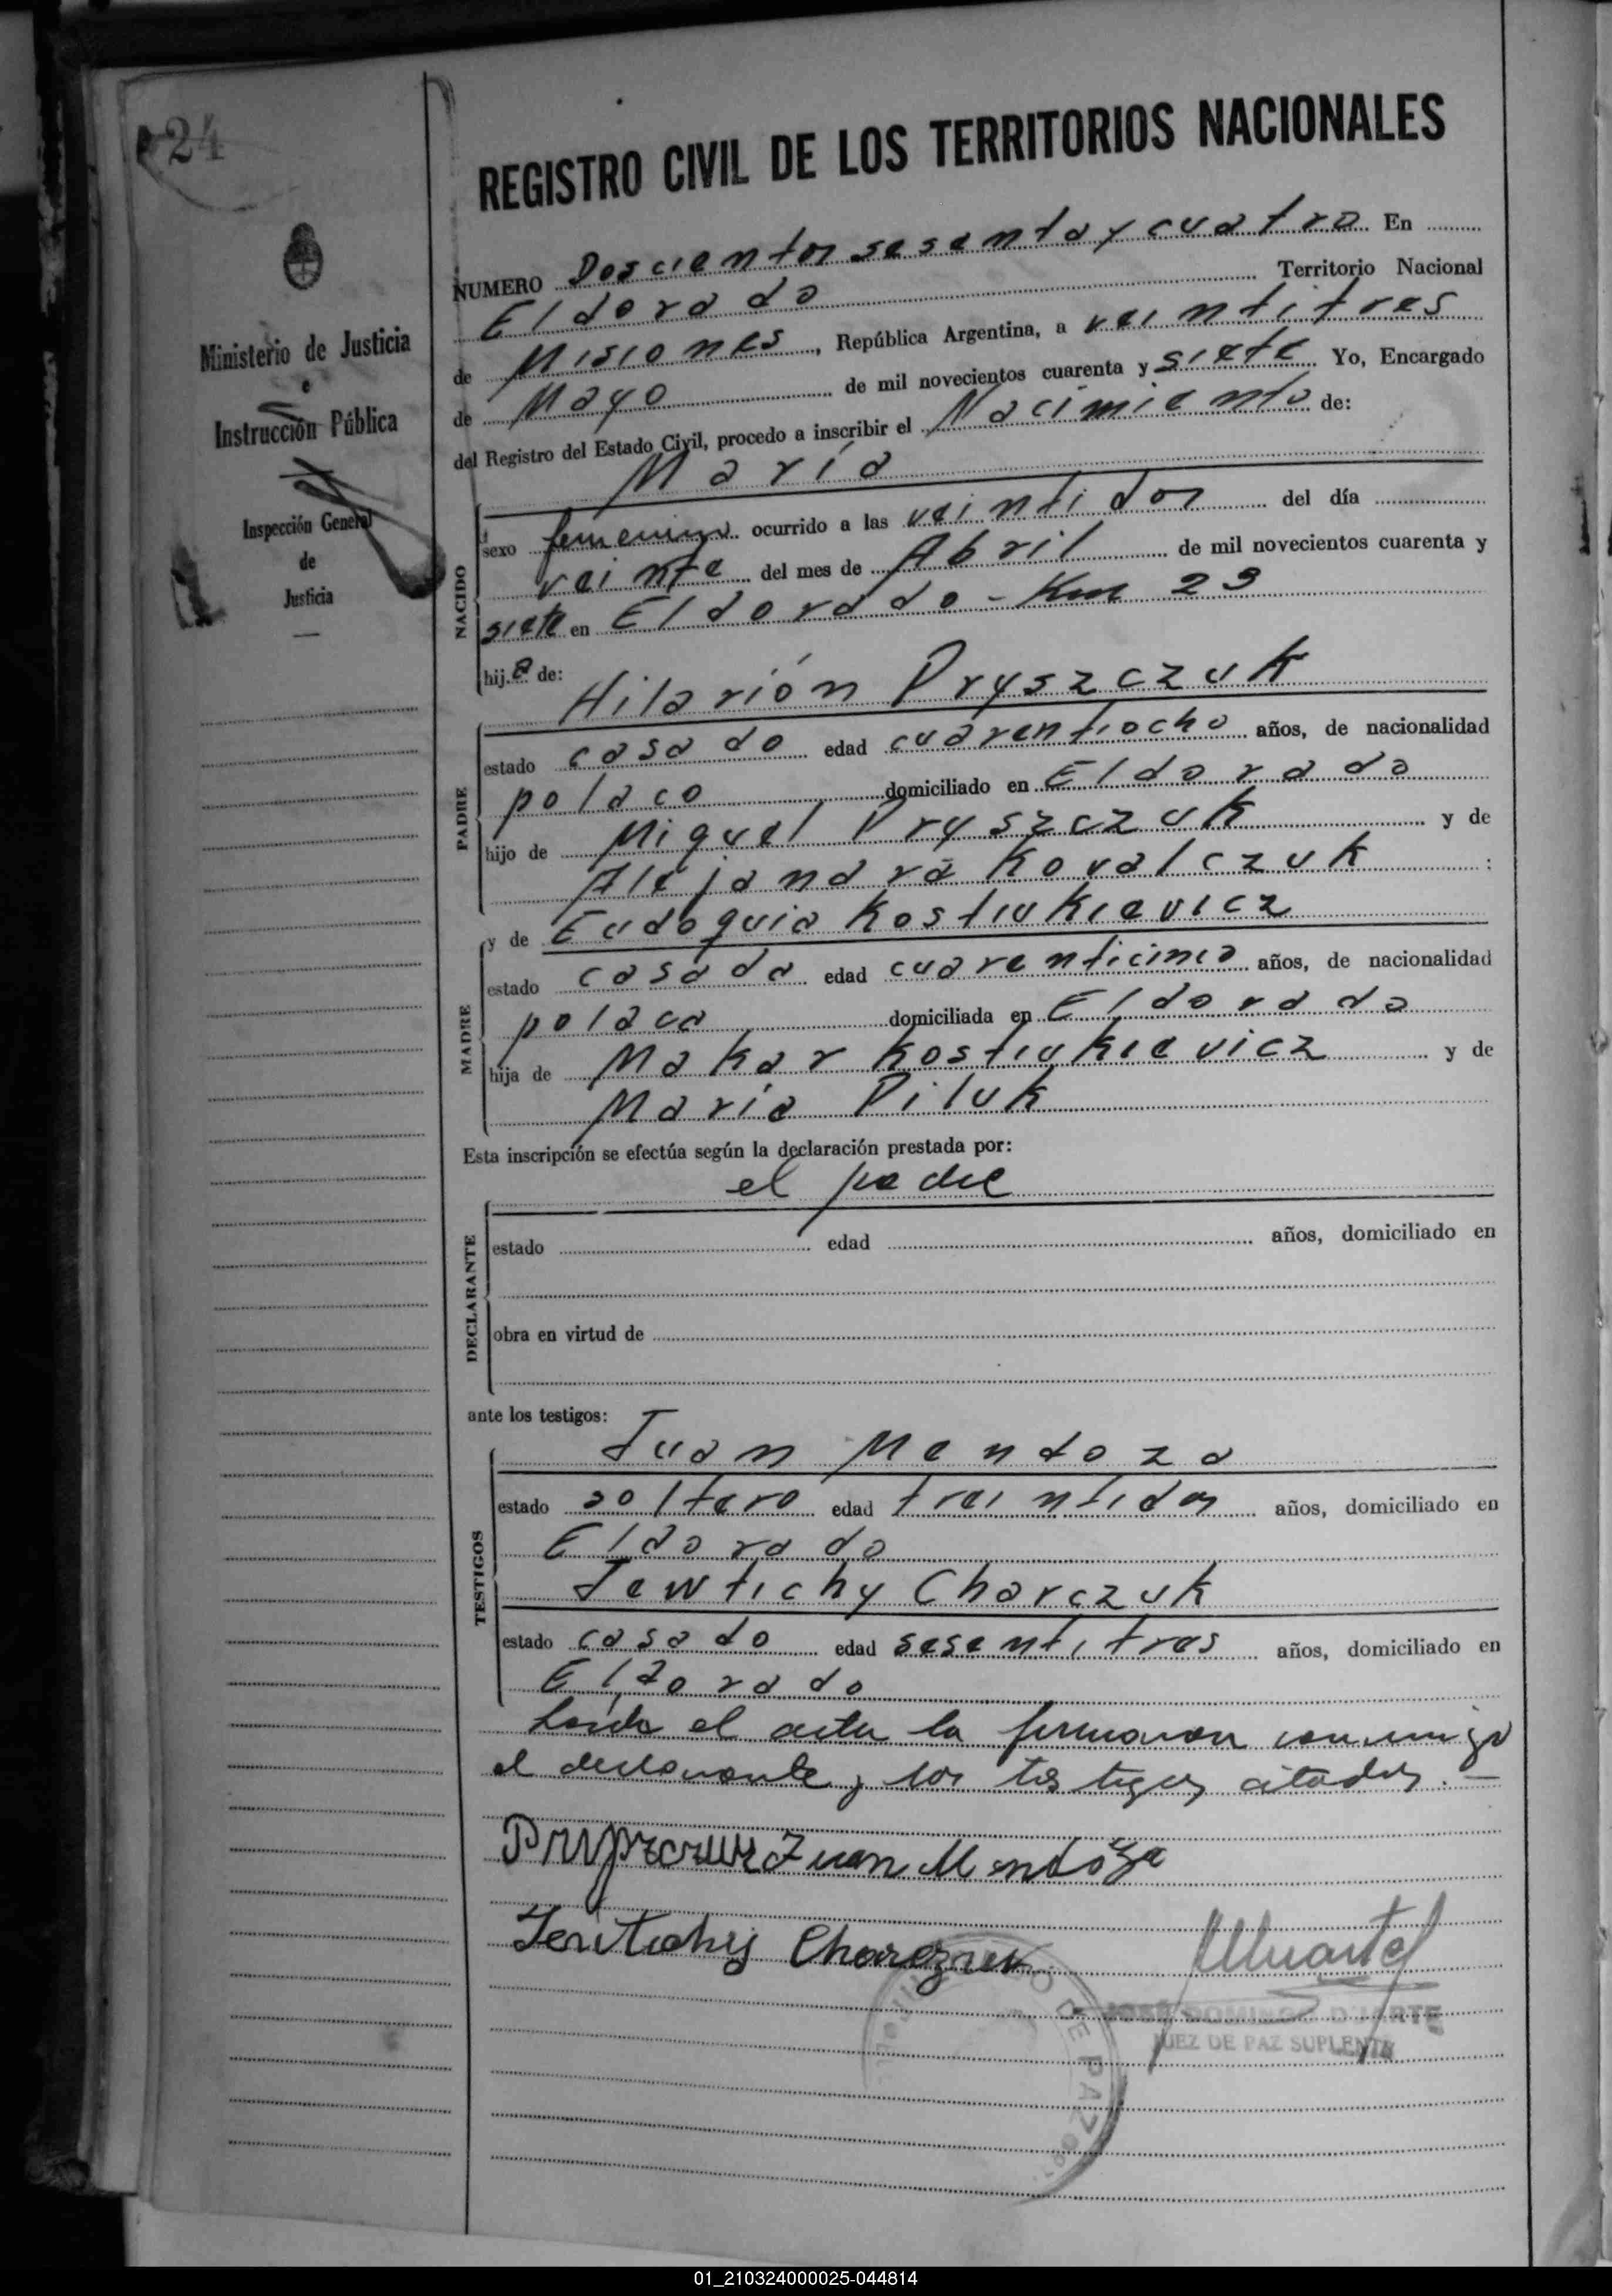 24
REGISTRO CIVIL DE LOS TERRITORIOS NACIONALES
Ministerio de Justicia
e
Instrucción Pública
Inspección General
de
Justicia
NUMERO Doscientos sesenta y cuatro En
Eldorado Territorio Nacional
de Misiones, República Argentina, a veintitres
de Mayo de mil novecientos cuarenta y siete Yo, Encargado
del Registro del Estado Civil, procedo a inscribir el Nacimiento de:
María
NACIDO
sexo femenino ocurrido a las veintidos del día
veinte del mes de Abril de mil novecientos cuarenta y
siete en Eldorado - Km 23
hija de:
Hilarión Pryszczuk
PADRE
estado casado edad cuarentiocho años, de nacionalidad
polaco domiciliado en Eldorado
hijo de Miguel Pryszczuk y de
Alejandra Kovalczuk :
y de Eudoquia Kostiukievicz
MADRE
estado casada edad cuarenticinco años, de nacionalidad
polaca domiciliada en Eldorado
hija de Makar Kostiukievicz y de
María Piluk
Esta inscripción se efectúa según la declaración prestada por:
el padre
DECLARANTE
estado edad años, domiciliado en
obra en virtud de
ante los testigos:
Juan Mendoza
TESTIGOS
estado soltero edad treintidos años, domiciliado en
Eldorado
Jewtichy Charczuk
estado casado edad sesentitres años, domiciliado en
Eldorado
Leída el acta la firmaron conmigo
el declarante y los testigos citados.-
Juan Mendoza
Charczuk
JOSE DOMINGO D'UARTE
JUEZ DE PAZ SUPLENTE
DE PAZ
01_210324000025-044814